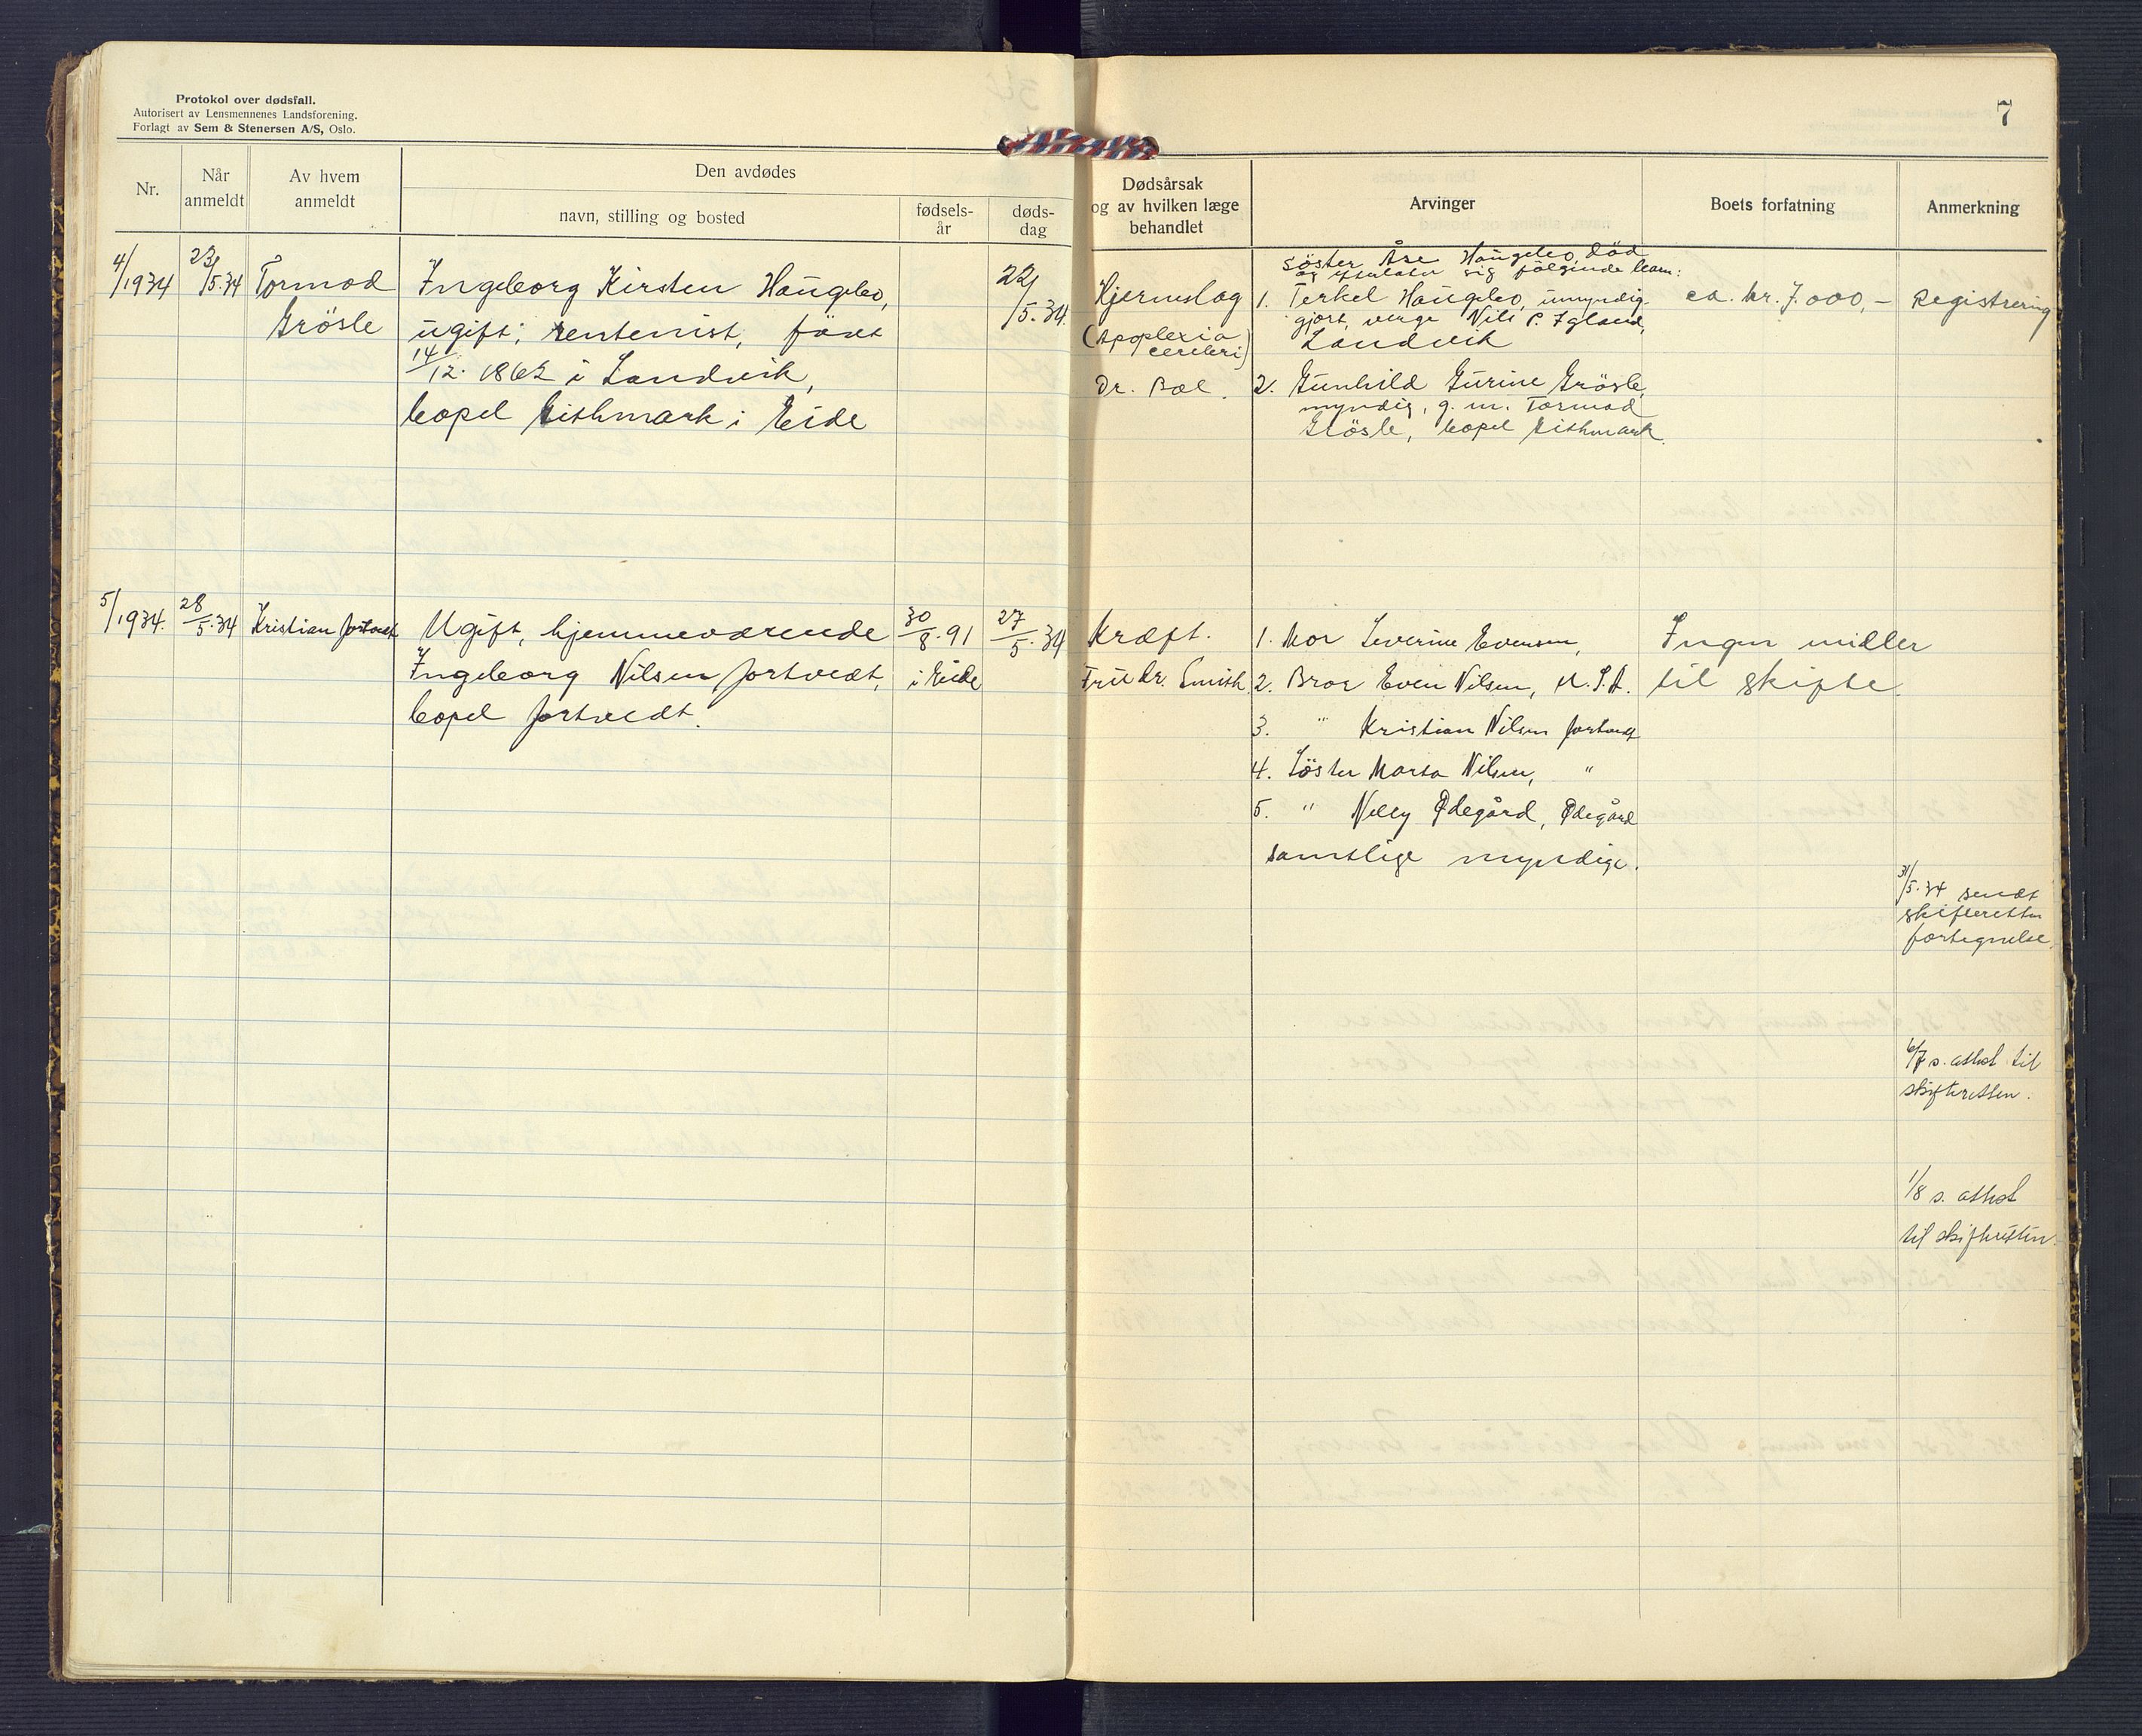 Protokol over dødsfall.
Autorisert av Lensmennenes Landsforening.
Forlagt av Sem & Stenersen A/S, Oslo.
7
Nr.
Når anmeldt
Av hvem anmeldt
Den avdødes
navn, stilling og bosted
fødsels-
år
døds-
dag
Dødsårsak
og av hvilken læge
behandlet
Arvinger
Boets forfatning
Anmerkning
4/1934
23/5.34
Tormod
Grösle
Ingeborg Kirsten Haugebo,
ugift; rentenist, födt
14/12. 1862 i Landvik,
bopel Eithmark i Eide
22/5.34.
Hjerneslag
(Apoplexia
cerebri)
Dr. Bøe.
söster Åse Haugebo, död
og efterlater sig følgende barn:
1. Terkel Haugebo, umyndig-
gjort, verge Nils P. Igland,
Landvik
2. Gunhild Gurine Grösle,
myndig, g. m. Tormod
Grösle, bopel Eithmark.
ca. kr. 7.000,-
Registrering
5/1934.
28/5.34
Kristian Jortveit
Ugift, hjemmeværende
Ingeborg Nilsen Jortvedt,
bopel Jortvedt.
30/8.91
i Eide
27/5.34
Kræft.
Fru Dr. Smith.
1. Mor Severine Evensen,
2. Bror Even Nilsen, U.S.A.
3. " Kristian Nilsen Jortvedt
4. Söster Marta Nilsen, "
5. " Nelly Ødegård, Ødegård
samtlige myndige.
Ingen midler
til skifte.
31/5.34 sendt
skifteretten
fortegnelse.
6/7 s. attest til
skifteretten.
1/8 s. attest
til skifteretten.